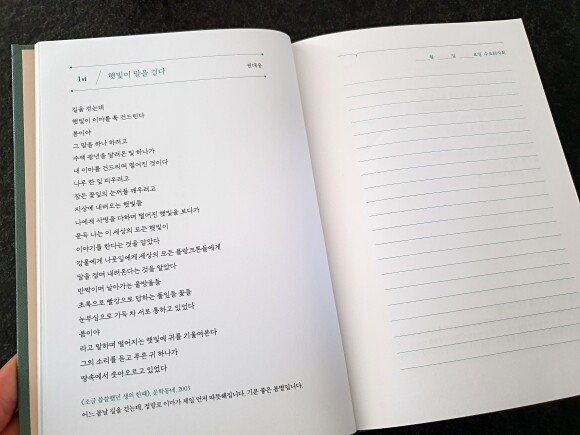 1st / 햇빛이 말을 걸다
권대웅
길을 걷는데
햇빛이 이마를 툭 건드린다
봄이야
그 말을 하나 하려고
수백 광년을 달려온 빛 하나가
내 이마를 건드리며 떨어진 것이다
나무 한 잎 피우려고
잠든 꽃잎의 눈꺼풀 깨우려고
지상에 내려오는 햇빛들
나에게 사명을 다하며 떨어진 햇빛을 보다가
문득 나는 이 세상의 모든 햇빛이
이야기를 한다는 것을 알았다
강물에게 나뭇잎에게 세상의 모든 플랑크톤들에게
말을 걸며 내려온다는 것을 알았다
반짝이며 날아가는 물방울들
초록으로 빨강으로 답하는 풀잎들 꽃들
눈부심으로 가득 차 서로 통하고 있었다
봄이야
라고 말하며 떨어지는 햇빛에 귀를 기울여본다
그의 소리를 듣고 푸른 귀 하나가
땅속에서 솟아오르고 있었다
《조금 쓸쓸했던 생의 한때》, 문학동네, 2003
어느 봄날 길을 걷는데, 정말로 이마가 제일 먼저 따뜻해집니다. 기분 좋은 봄볕입니다.
월 일 요일 수요의시회